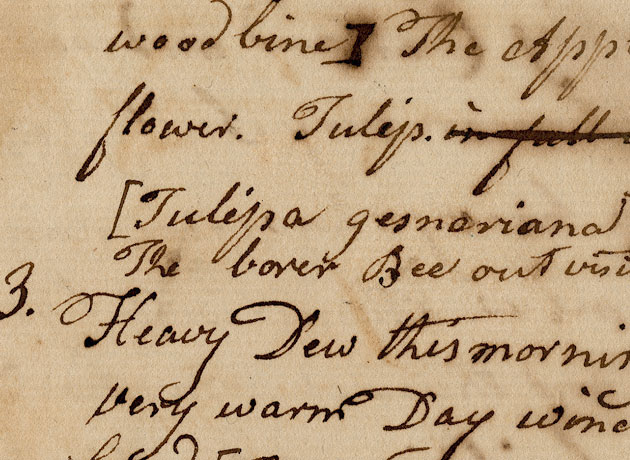 woodbine] The App
flower. Tulip. in full
[Tulipa gesneriana]
The borer Bee out visi
3. Heavy Dew this mornin
very warm Day wind